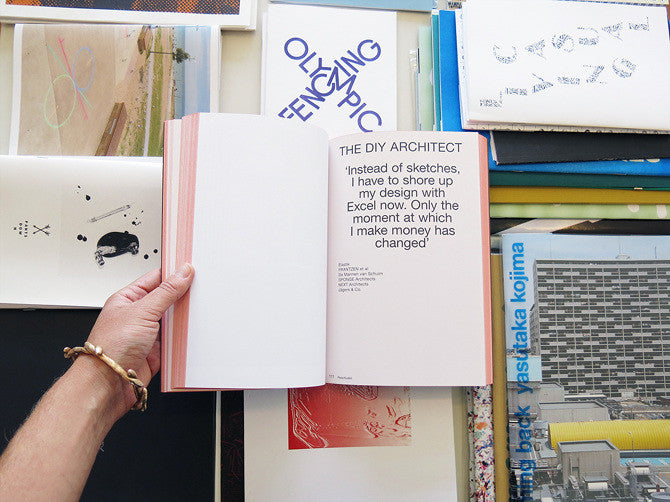 OLYMPIC
FENCZING
THE DIY ARCHITECT
‘Instead of sketches,
I have to shore up
my design with
Excel now. Only the
moment at which
I make money has
changed’
FRANTZEN et al
De Mannen van Schuim
SPONGE Architects
NEXT Architects
ring back yasutaka kojima